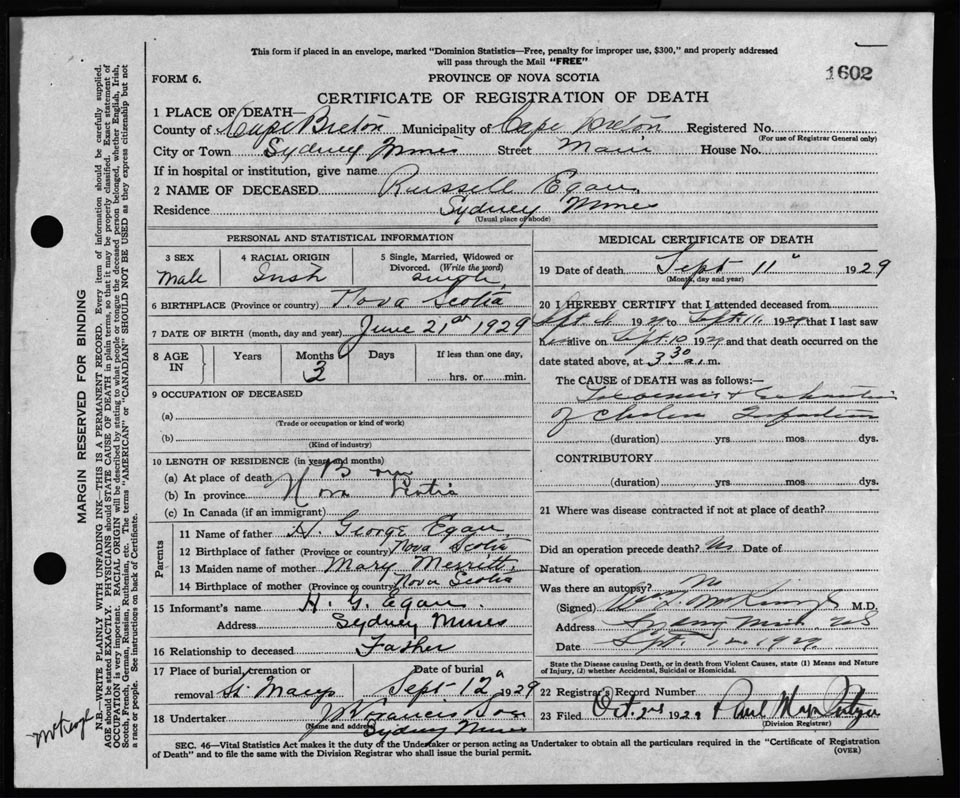 This form if placed in an envelope, marked "Dominion Statistics—Free, penalty for improper use, $300," and properly addressed
will pass through the Mail "FREE"
1602
FORM 6. PROVINCE OF NOVA SCOTIA
CERTIFICATE OF REGISTRATION OF DEATH
1 PLACE OF DEATH—
County of Cape Breton Municipality of Cape Breton Registered No.
(For use of Registrar General only)
City or Town Sydney Mines Street Main House No.
If in hospital or institution, give name
2 NAME OF DECEASED Russell Egan
Residence Sydney Mines
(Usual place of abode)
PERSONAL AND STATISTICAL INFORMATION
3 SEX 4 RACIAL ORIGIN 5 Single, Married, Widowed or
Divorced. (Write the word)
Male Irish single
6 BIRTHPLACE (Province or country) Nova Scotia
7 DATE OF BIRTH (month, day and year) June 21st 1929
8 AGE IN Years Months Days If less than one day,
3 hrs. or min.
9 OCCUPATION OF DECEASED
(a)
(Trade or occupation or kind of work)
(b)
(Kind of industry)
10 LENGTH OF RESIDENCE (in years and months)
(a) At place of death
(b) In province Nova Scotia
(c) In Canada (if an immigrant)
Parents
11 Name of father H. George Egan
12 Birthplace of father (Province or country) Nova Scotia
13 Maiden name of mother Mary Merritt
14 Birthplace of mother (Province or country) Nova Scotia
15 Informant's name H. G. Egan
Address Sydney Mines
16 Relationship to deceased Father
17 Place of burial, cremation or Date of burial
removal St. Marys Sept 12 1929
18 Undertaker Francis
(Name and address) Sydney Mines
MEDICAL CERTIFICATE OF DEATH
19 Date of death Sept 11 1929
(Month, day and year)
20 I HEREBY CERTIFY that I attended deceased from
Sept 1929 to Sept 11 1929 that I last saw
alive on Sept 10 1929 and that death occurred on
date stated above, at 3 30 a.m.
The CAUSE of DEATH was as follows:—
of Cholera Infantum
(duration) yrs. mos dys.
CONTRIBUTORY
(duration) yrs. mos. dys.
21 Where was disease contracted if not at place of death?
Did an operation precede death? No Date of
Nature of operation
Was there an autopsy? No
(Signed) M.D.
Address Sydney Mines N.S
Date Sept 1929
State the Disease causing Death, or in death from Violent Causes, state (1) Means and Nature
of Injury, (2) whether Accidental, Suicidal or Homicidal.
22 Registrar's Record Number
23 Filed Oct 2nd 1929 Paul
(Division Registrar)
SEC. 46—Vital Statistics Act makes it the duty of the Undertaker or person acting as Undertaker to obtain all the particulars required in the "Certificate of Registration
of Death" and to file the same with the Division Registrar who shall issue the burial permit. (OVER)
MARGIN RESERVED FOR BINDING
N.B.—WRITE PLAINLY WITH UNFADING INK—THIS IS A PERMANENT RECORD. Every item of information should be carefully supplied.
AGE should be stated EXACTLY. PHYSICIANS should STATE CAUSE OF DEATH in plain terms, so that it may be properly classified. Exact statement of
OCCUPATION is very important. RACIAL ORIGIN will be described by stating to what people or tongue the deceased person belonged, whether English, Irish,
Scotch, French, German, Russian, Ruthenian, etc. The terms "AMERICAN" or "CANADIAN" SHOULD NOT BE USED as they express citizenship but not
a race or people. See instructions on back of Certificate.